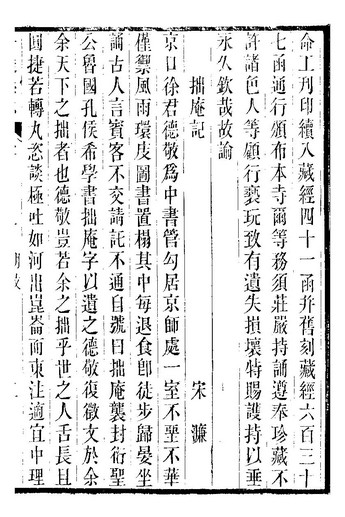 命工刊印續入藏經四十一函并舊刻藏經六百三十
七函通行頒布本寺爾等務須莊嚴持誦遵奉珍藏不
許諸色人等顧行褻玩致有遺失損壞特賜護持以垂
永久欽哉故諭
拙庵記 宋濂
京口徐君德敬爲中書管勾居京師處一室不堊不華
僅禦風雨環庋圖書置榻其中每退食卽徒步歸晏坐
誦古人言賓客不交請託不通自號曰拙庵襲封衍聖
公魯國孔侯希學書拙庵字以遺之德敬復徵文於余
余天下之拙者也德敬豈若余之拙乎世之人舌長且
圓捷若轉丸恣談極吐如河出崑崙而東注適宜中理